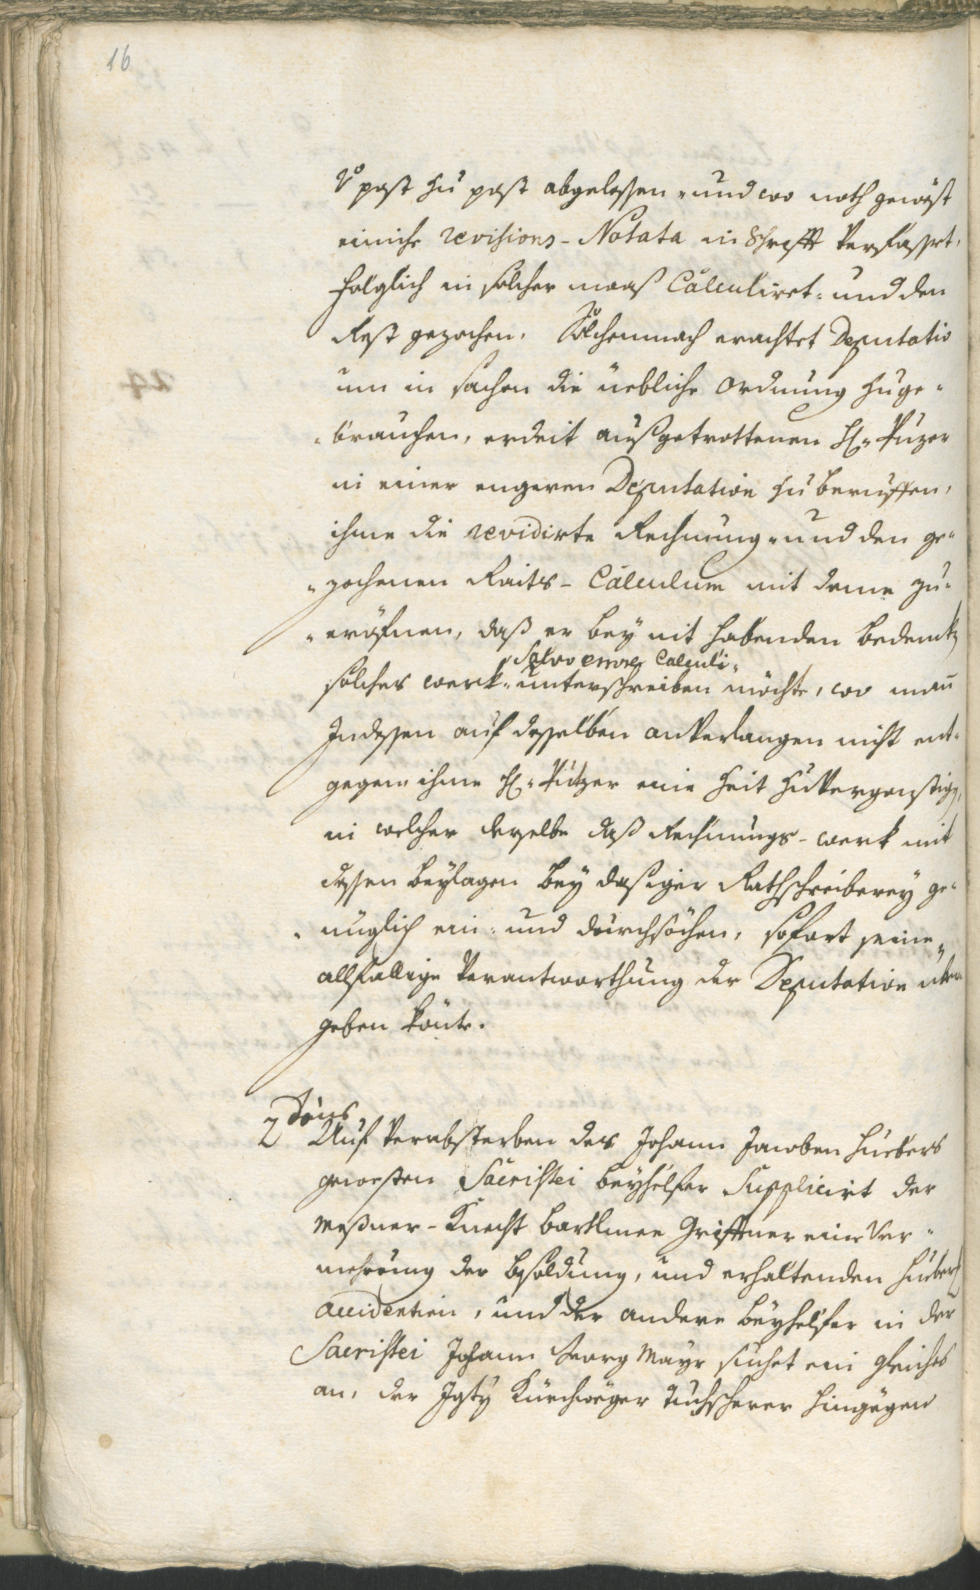 16
Vo post zu post abgelassen, und wo noth gewest
einiche revisions-Notata in Schrifft verfasset,
folglich in solcher maaß Calculiret, und den
Rest gezochen. Solchemnach erachtet Deputatio
um in sachen die üebliche Ordnung zuge-
brauchen, erdeit außgetrottenen H: Puzer
in einer engeren Deputation zu beruffen,
ihme die revidirte Rechnung, und den ge-
zochenen Raits-Calculum mit deme zu-
eröfnen, daß er bey nit habenden bedenckh
Salvo errore Calculi
solches werk unterschreiben möchte, wo man
Indessen auf desselben anverlangen nicht ent-
gegen ihme H: Putzer eine Zeit zuvergonstigen,
in welcher derselbe daß Rechnungs-werk mit
dessen beylagen bey dasiger Rathschreiberey ge-
nüglich ein- und durchsöchen, sofort seine
allfallige Verantworthung der Deputation über
geben könte.
2dens
Auf Verabsterben des Johann Jacoben Huebers
gewesten Sacristei beyhelfer Supplicirt der
Meßner-Knecht Bartlmee Griffner eine Ver-
mehrung der besoldung, und erhaltenden Huebers
Accidentien, und der andere beyhelfer in der
Sacristei Johann Georg Mayr suchet ein gleiches
an, der Igtz Kürchweger Tuchscherer hingegen